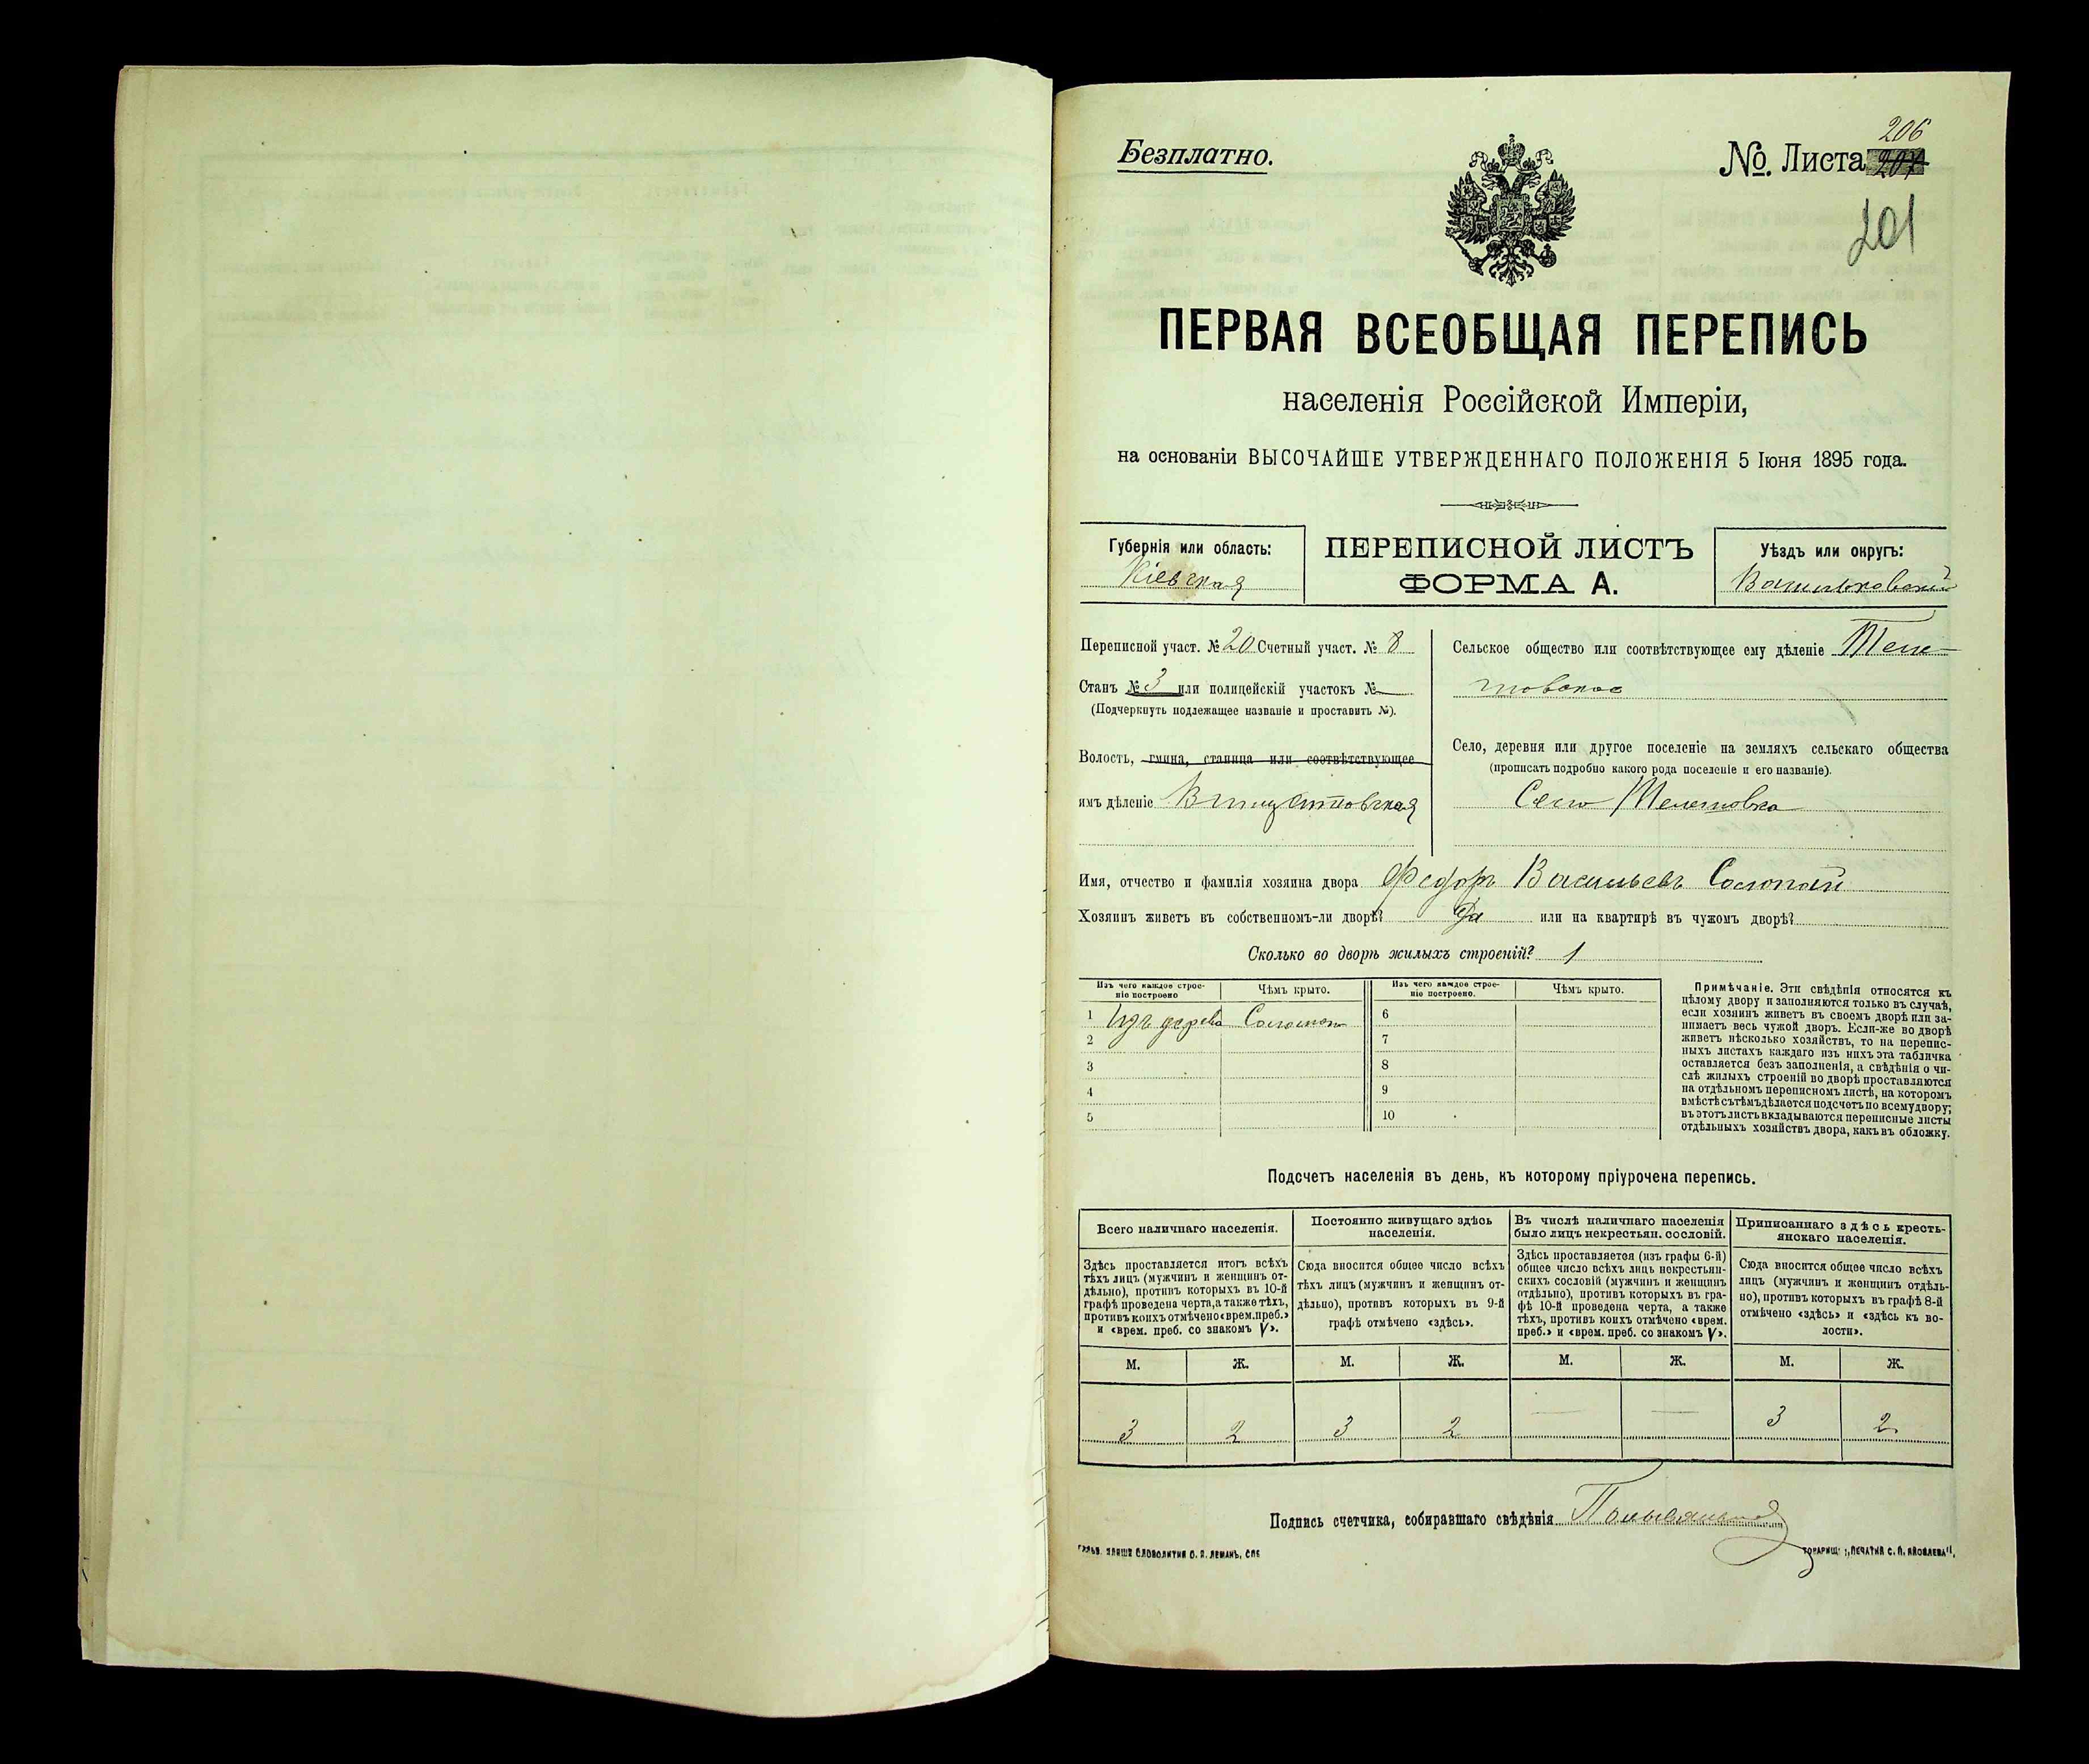 Безплатно.
№. Листа 206
201
ПЕРВАЯ ВСЕОБЩАЯ ПЕРЕПИСЬ
населенія Россійской Имперіи,
на основаніи ВЫСОЧАЙШЕ УТВЕРЖДЕННАГО ПОЛОЖЕНІЯ 5 Іюня 1895 года.
Губернія или область:
Кіевская
ПЕРЕПИСНОЙ ЛИСТЪ
ФОРМА А.
Уѣздъ или округъ:
Васильковскій
Переписной участ. № 20 Счетный участ. № 8
Станъ № 3 или полицейскій участокъ №
(Подчеркнуть подлежащее названіе и проставить №).
Волость, гмина, станица или соотвѣтствующее
имъ дѣленіе Винцентовская
Сельское общество или соотвѣтствующее ему дѣленіе
Село, деревня или другое поселеніе на земляхъ сельскаго общества
(прописать подробно какого рода поселеніе и его названіе).
Село
Имя, отчество и фамилія хозяина двора Федоръ Васильевъ Солопай
Хозяинъ живетъ въ собственномъ-ли дворѣ? Да или на квартирѣ въ чужомъ дворѣ?
Сколько во дворѣ жилыхъ строеній? 1
Изъ чего каждое строе-
ніе построено
Чѣмъ крыто.
Изъ чего каждое строе-
ніе построено.
Чѣмъ крыто.
1 Изъ дерева Соломою
2
3
4
5
6
7
8
9
10
Примѣчаніе. Эти свѣдѣнія относятся къ
цѣлому двору и заполняются только въ случаѣ,
если хозяинъ живетъ въ своемъ дворѣ или за-
нимаетъ весь чужой дворъ. Если-же во дворѣ
живетъ нѣсколько хозяйствъ, то на перепис-
ныхъ листахъ каждаго изъ нихъ эта табличка
оставляется безъ заполненія, а свѣдѣнія о чи-
слѣ жилыхъ строеній во дворѣ проставляются
на отдѣльномъ переписномъ листѣ, на которомъ
вмѣстѣ съ тѣмъ дѣлается подсчетъ по всему двору;
въ этотъ листъ вкладываются переписные листы
отдѣльныхъ хозяйствъ двора, какъ въ обложку.
Подсчетъ населенія въ день, къ которому пріурочена перепись.
Всего наличнаго населенія.
Здѣсь проставляется итогъ всѣхъ
тѣхъ лицъ (мужчинъ и женщинъ от-
дѣльно), противъ которыхъ въ 10-й
графѣ проведена черта, а также тѣхъ,
противъ коихъ отмѣчено «врем. преб.»
и «врем. преб. со знакомъ V».
Постоянно живущаго здѣсь
населенія.
Сюда вносится общее число всѣхъ
тѣхъ лицъ (мужчинъ и женщинъ от-
дѣльно), противъ которыхъ въ 9-й
графѣ отмѣчено «здѣсь».
Въ числѣ наличнаго населенія
было лицъ некрестьян. сословій.
Здѣсь проставляется (изъ графы 6-й)
общее число всѣхъ лицъ некрестьян-
скихъ сословій (мужчинъ и женщинъ
отдѣльно), противъ которыхъ въ гра-
фѣ 10-й проведена черта, а также
тѣхъ, противъ коихъ отмѣчено «врем.
преб.» и «врем. преб. со знакомъ V».
Приписаннаго здѣсь кресть-
янскаго населенія.
Сюда вносится общее число всѣхъ
лицъ (мужчинъ и женщинъ отдѣль-
но), противъ которыхъ въ графѣ 8-й
отмѣчено «здѣсь» и «здѣсь къ во-
лости».
М. Ж. М. Ж. М. Ж. М. Ж.
3 2 3 2 — — 3 2
Подпись счетчика, собиравшаго свѣдѣнія
словолитня О. И. Леманъ, СПБ
Товарищ. „Печатня С. П. Яковлева".